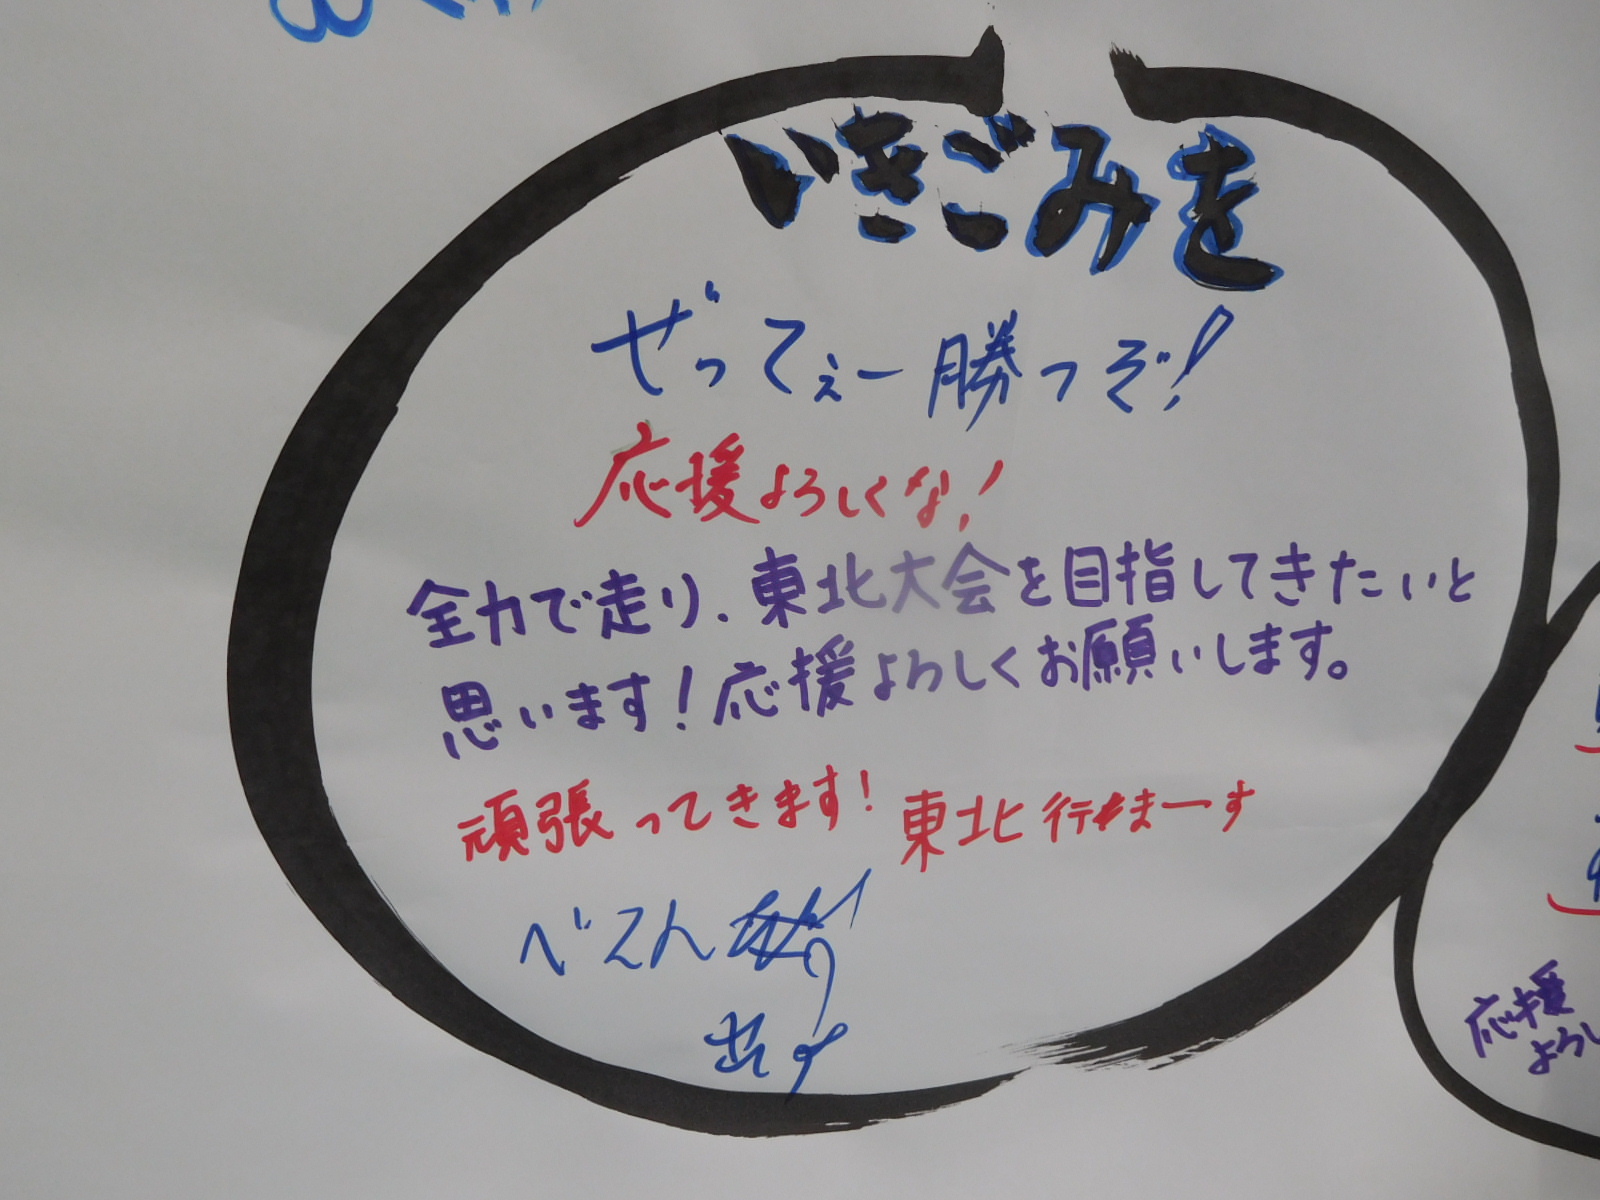 いきごみを
ぜってぇー勝つぞ!
応援よろしくな!
全力で走り、東北大会を目指してきたいと
思います!応援よろしくお願いします。
頑張ってきます! 東北行きまーす
べえん
出す
応援
よろし